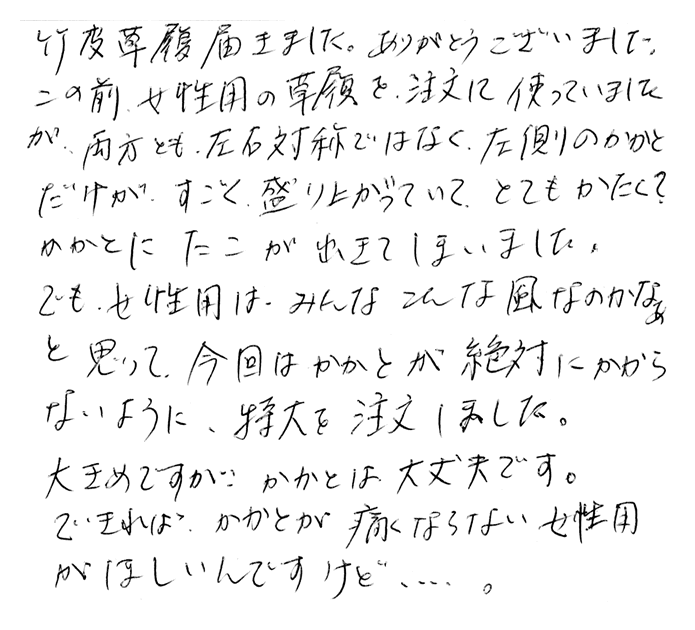 竹皮草履届きました。ありがとうございました。
この前、女性用の草履を、注文に使っていました
が、両方とも、左右対称ではなく、左側のかかと
だけが、すごく、盛り上がっていて、とてもかたくて
かかとにたこが出きてしまいました。
でも、女性用は、みんなこんな風なのかなぁ
と思って、今回はかかとが絶対にかから
ないように、特大を注文しました。
大きめですが、かかとは大丈夫です。
できれば、かかとが痛くならない女性用
がほしいんですけど、……。